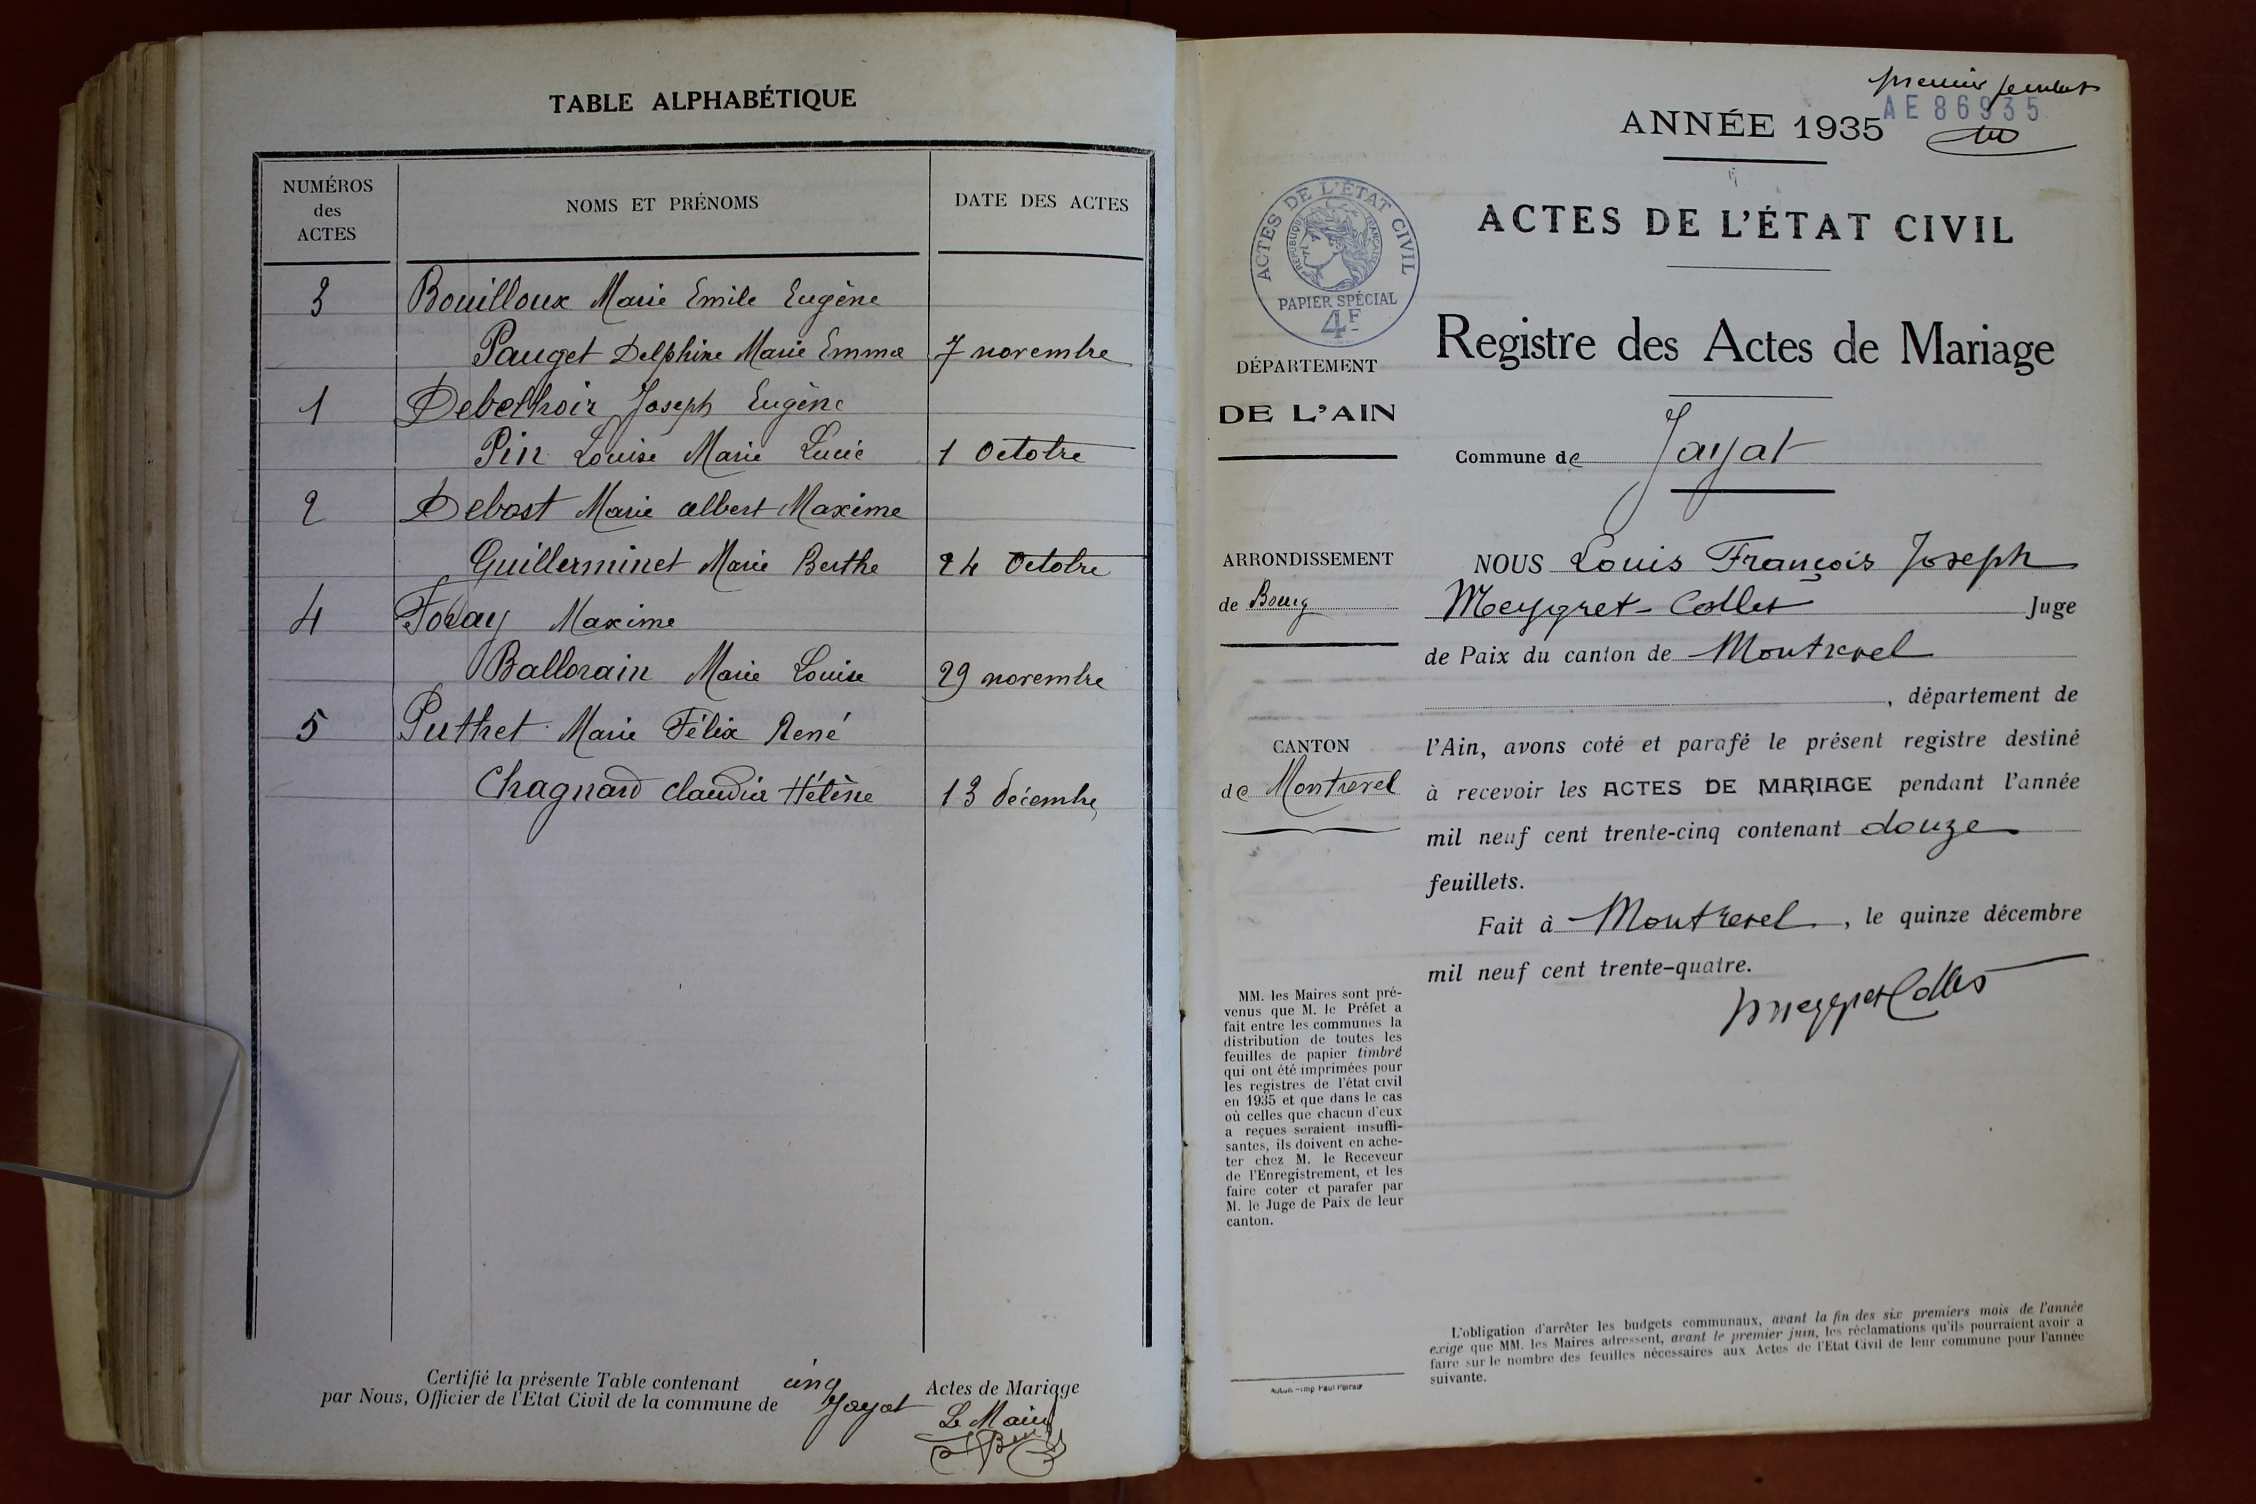 TABLE ALPHABÉTIQUE
NUMÉROS
des
ACTES
NOMS ET PRÉNOMS
DATE DES ACTES
3 Bouilloux Marie Emile Eugène
Pauget Delphine Marie Emma 7 novembre
1 Debethoir Joseph Eugène
Pin Louise Marie Lucie 1 Octobre
2 Debost Marie albert Maxime
Guillerminet Marie Berthe 24 Octobre
4 Foray Maxime
Ballorain Marie Louise 29 novembre
5 Puthet Marie Félix René
Chagnard Claudia Hélène 13 décembre
Certifié la présente Table contenant cinq Actes de Mariage
par Nous, Officier de l'Etat Civil de la commune de Jayat
Le Maire
premier feuillet
AE 86935
ANNÉE 1935
ACTES DE L'ÉTAT CIVIL
ACTES DE L'ÉTAT CIVIL
RÉPUBLIQUE FRANÇAISE
PAPIER SPÉCIAL
4F
Registre des Actes de Mariage
DÉPARTEMENT
DE L'AIN
Commune de Jayat
ARRONDISSEMENT
de Bourg
CANTON
de Montrevel
NOUS Louis François Joseph
Meygret-Collet Juge
de Paix du canton de Montrevel
, département de
l'Ain, avons coté et parafé le présent registre destiné
à recevoir les ACTES DE MARIAGE pendant l'année
mil neuf cent trente-cinq contenant douze
feuillets.
Fait à Montrevel, le quinze décembre
mil neuf cent trente-quatre.
Meygret Collet
MM. les Maires sont pré-
venus que M. le Préfet a
fait entre les communes la
distribution de toutes les
feuilles de papier timbré
qui ont été imprimées pour
les registres de l'état civil
en 1935 et que dans le cas
où celles que chacun d'eux
a reçues seraient insuffi-
santes, ils doivent en ache-
ter chez M. le Receveur
de l'Enregistrement, et les
faire coter et parafer par
M. le Juge de Paix de leur
canton.
L'obligation d'arrêter les budgets communaux, avant la fin des six premiers mois de l'année
exige que MM. les Maires adressent, avant le premier juin, les réclamations qu'ils pourraient avoir à
faire sur le nombre des feuilles nécessaires aux Actes de l'Etat Civil de leur commune pour l'année
suivante.